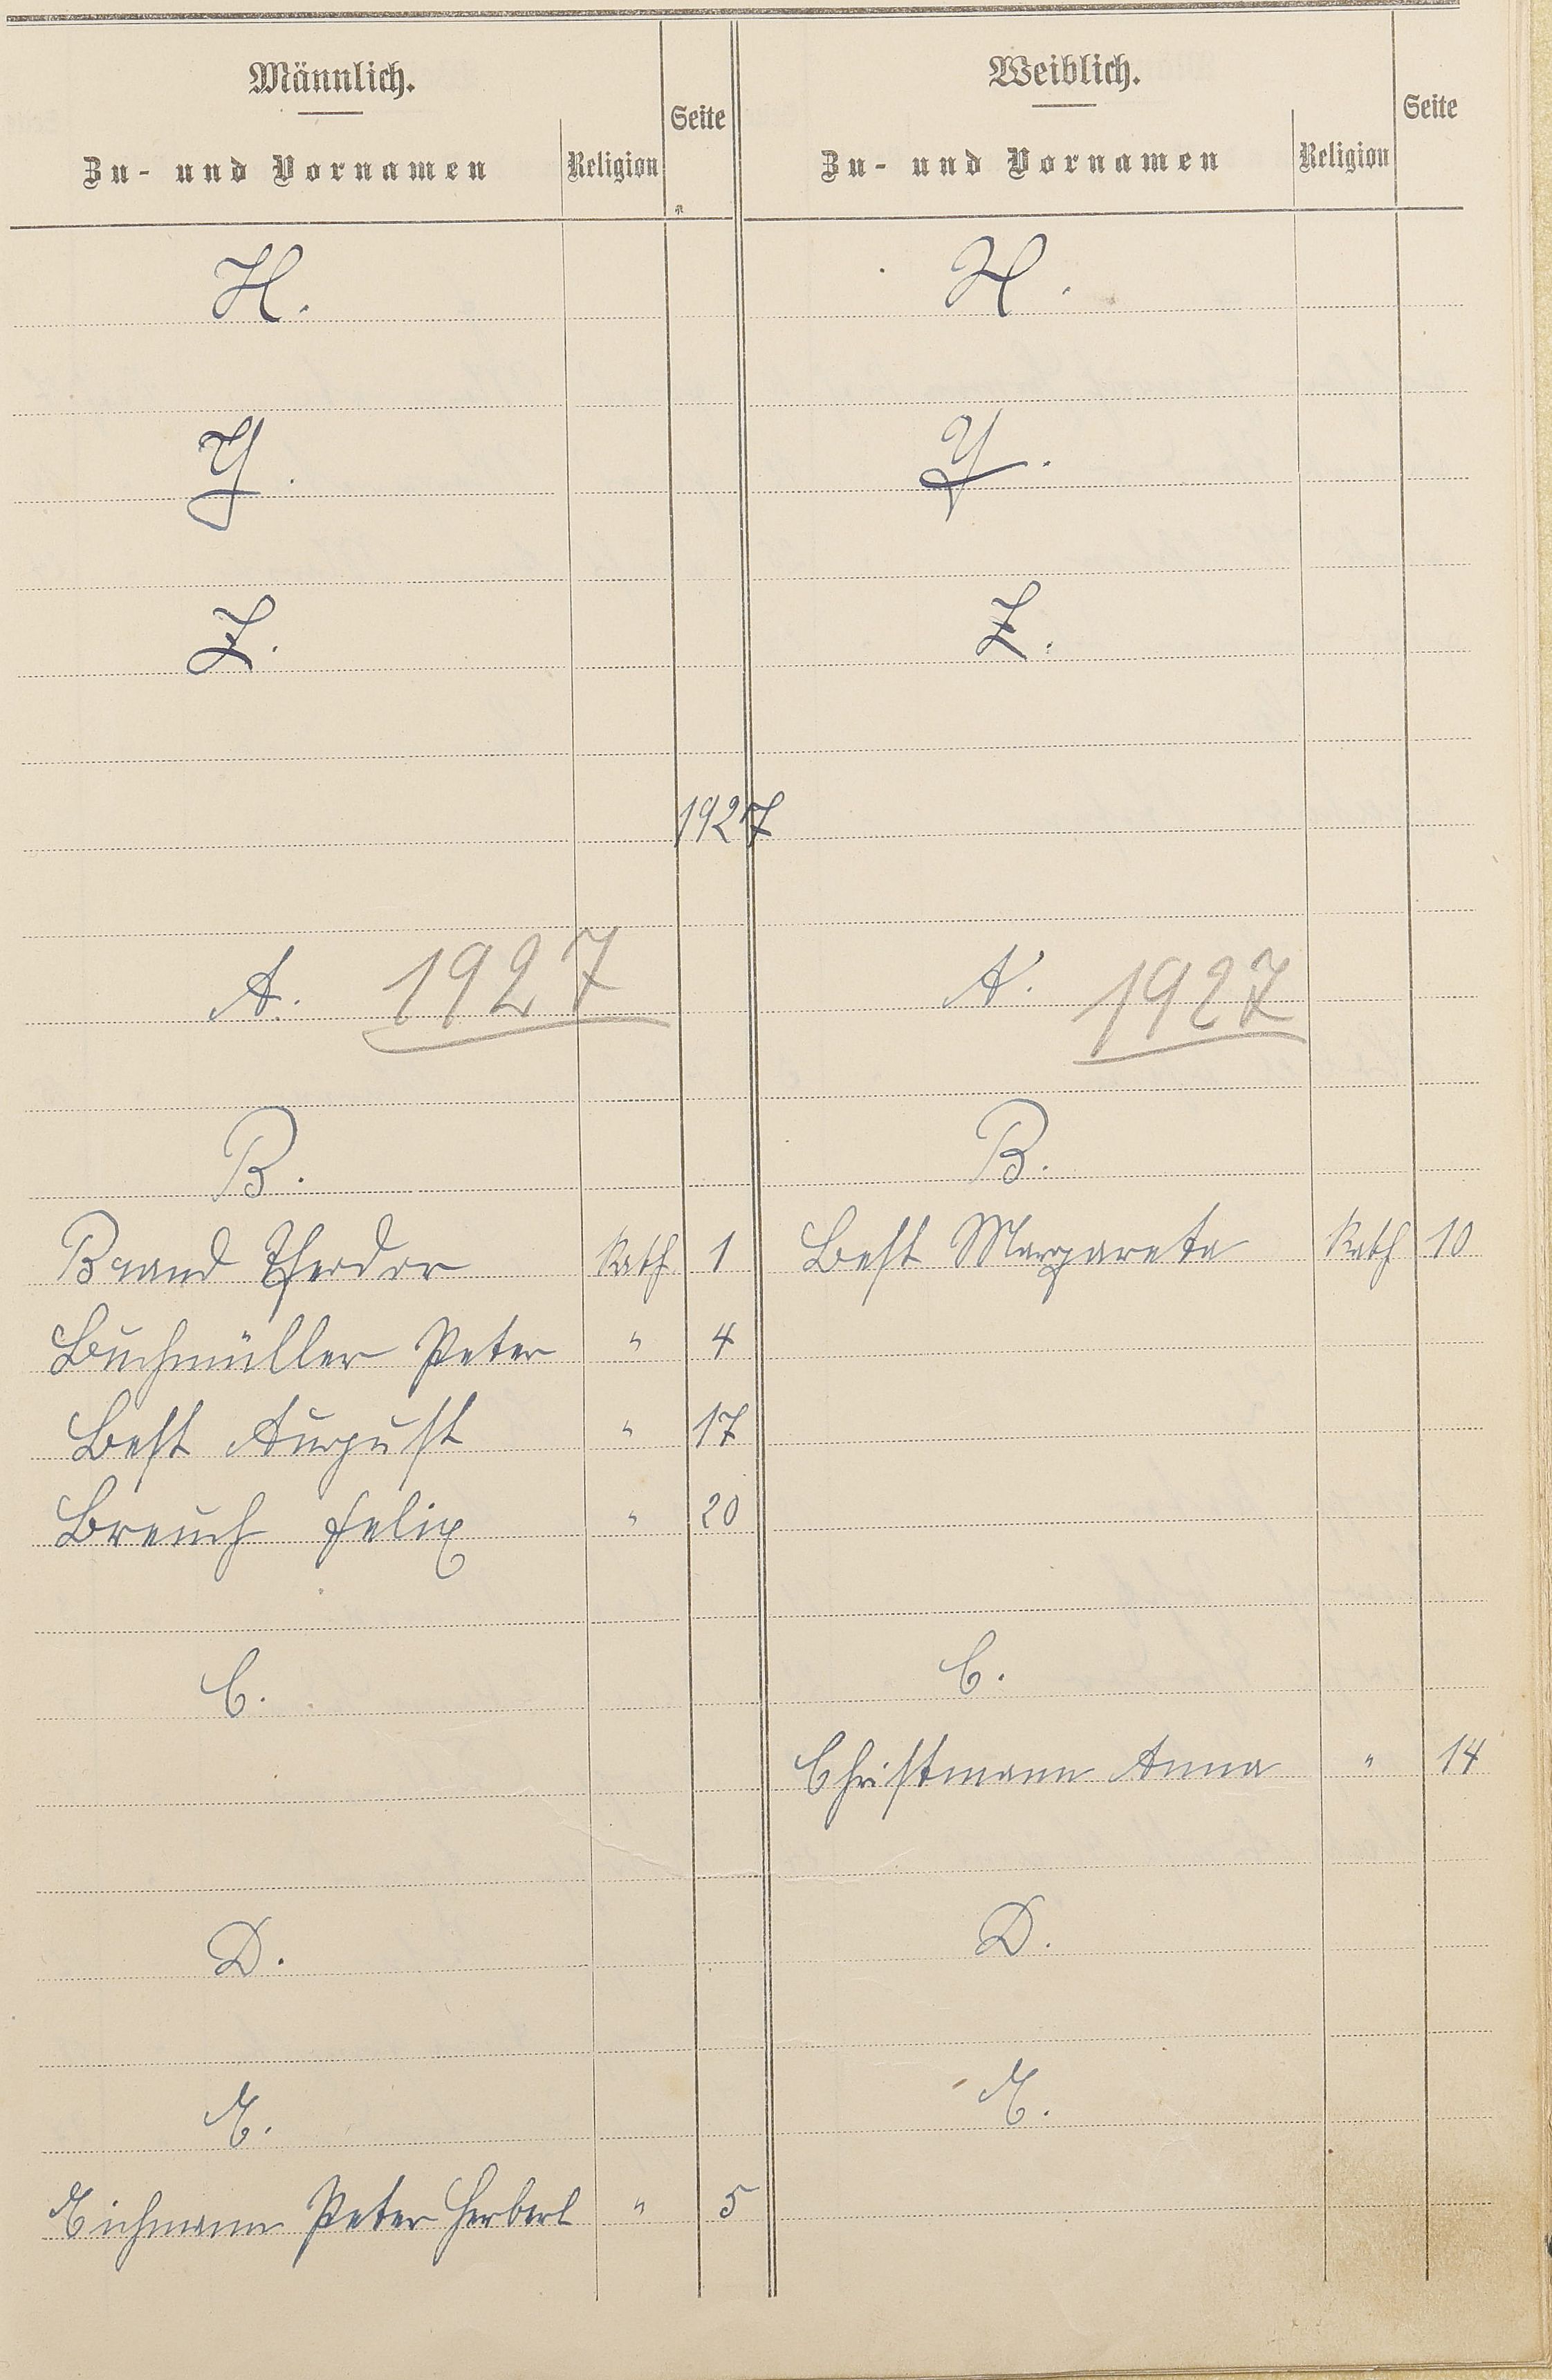 Männlich. Weiblich.
Seite Seite
Zu- und Vornamen Religion Zu- und Vornamen Religion
X. X.
Y. Y.
Z. Z.
1927
A. 1927 A. 1927
B. B.
Brand Theodor Kath 1 Best Margareta Kath 10
Buchmüller Peter " 4
Best August " 17
Breuch Felix " 20
C. C.
Christmann Anna " 14
D. D.
E. E.
Eichmann Peter Herbert " 5